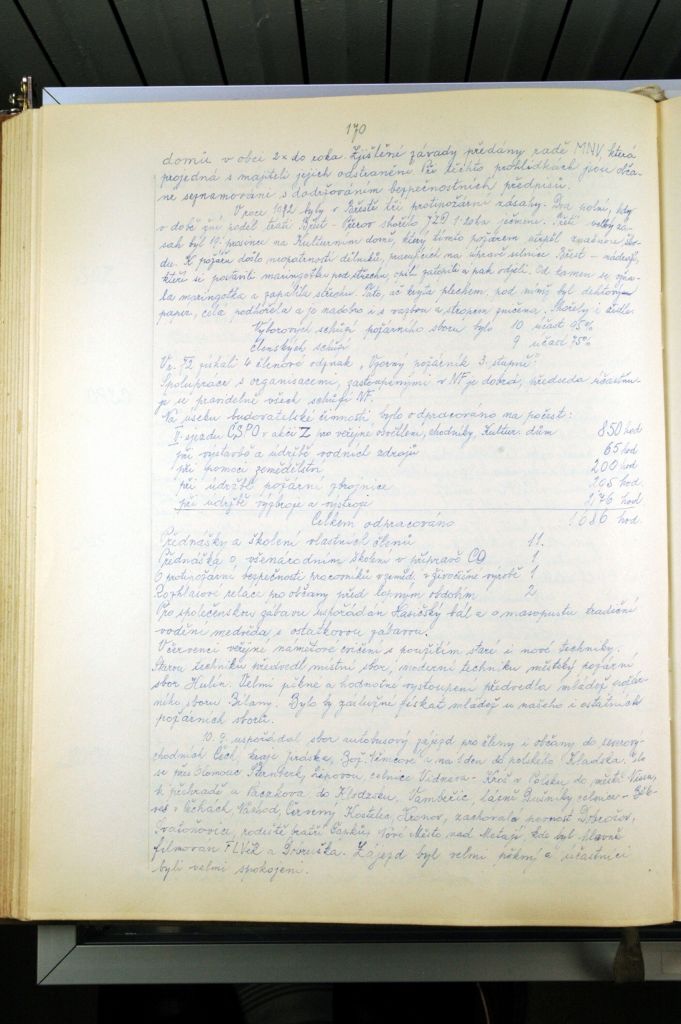 170
domů v obci 2x do roka. Zjištění závady předány radě MNV, která
projedná s majiteli jejich odstranění. Při těchto prohlídkách jsou obča-
né seznamováni s dodržováním bezpečnostních předpisů.
V roce 1972 byly v Břestě tři protipožární zásahy. Dva polní, kdy
v době žní podél trati Břest - Přerov shořelo JZD 1.20ha ječmene. Třetí velký zá-
sah byl 19. prosince na Kulturním domě, který tímto požárem utrpěl značnou ško-
du. K požáru došlo neopatrností dělníků, pracujících na úpravě silnice Břest - nádraží,
kteří si postavili maringotku pod střechu, opili zatopili a pak odjeli. Od kamen se
la maringotka a zapálila střechu. Tato, ač kryta plechem, pod nímž byl dehtovým
papír, celá podhořela a je nadobro i s vazbou a stropem zničena. Shořely i židle.
Výborových schůzí požárního sboru bylo 10 účast 95%
členských schůzí 9 účast 75%
V r. 72 získali 4 členové odznak „Vzorný požárník 3. stupně“.
Spolupráce s organisacemi, zastoupenými v NF je dobrá, předseda účastňu-
je se pravidelně všech schůzí NF.
Na úseku budovatelské činnosti, bylo odpracováno na počest:
V. sjezdu ČSPO v akci Z pro veřejné osvětlení, chodníky, Kultur. dům 850 hod
při výstavbě a údržbě vodních zdrojů 65 hod
při pomoci zemědělství 200 hod
při údržbě požární zbrojnice 205 hod
při údržbě výzbroje a výstroje hod
Celkem odpracováno 1686 hod.
Přednášky a školení vlastních členů 11.
Přednáška o všenárodním školení v přípravě CO 1
O protipožární bezpečnosti pracovníků v zeměd. v živočišné výrobě 1
Rozhlasové relace pro občany před topným obdobím 2
Pro společenskou zábavu uspořádán Hasičský bál a o masopustu tradiční
vodění medvěda s ostatkovou zábavou.
V červenci veřejné námětové cvičení s použitím staré i nové techniky.
Starou techniku předvedl místní sbor, moderní techniku městský požární
sbor Hulín. Velmi pěkné a hodnotné vystoupení předvedla mládež požár-
ního sboru Bílany. Bylo by záslužné získat mládež u našeho i ostatních
požárních sborů.
10. 9. uspořádal sbor autobusový zájezd pro členy i občany do severový-
chodních Čech, kraje Jiráska, Bož. Němcové a na 1 den do polského Kladska. Jelo
se přes Olomouc Šternberk, Lipovou, celnice Vidnava - v Polsku do města Nissa,
k přehradě a Paczkova do Klodzsku, Vambeřic, lázně Dušníky celnice -
v Čechách Náchod, Červený Kostelec, Hronov, zachovalá pevnost Dobrošov,
Svatoňovice, rodiště bratří Čapků, Nové Město nad Metují, kde byl hlavně
filmován F.L.Věk a Dobruška. Zájezd byl velmi pěkný a účastníci
byli velmi spokojeni.